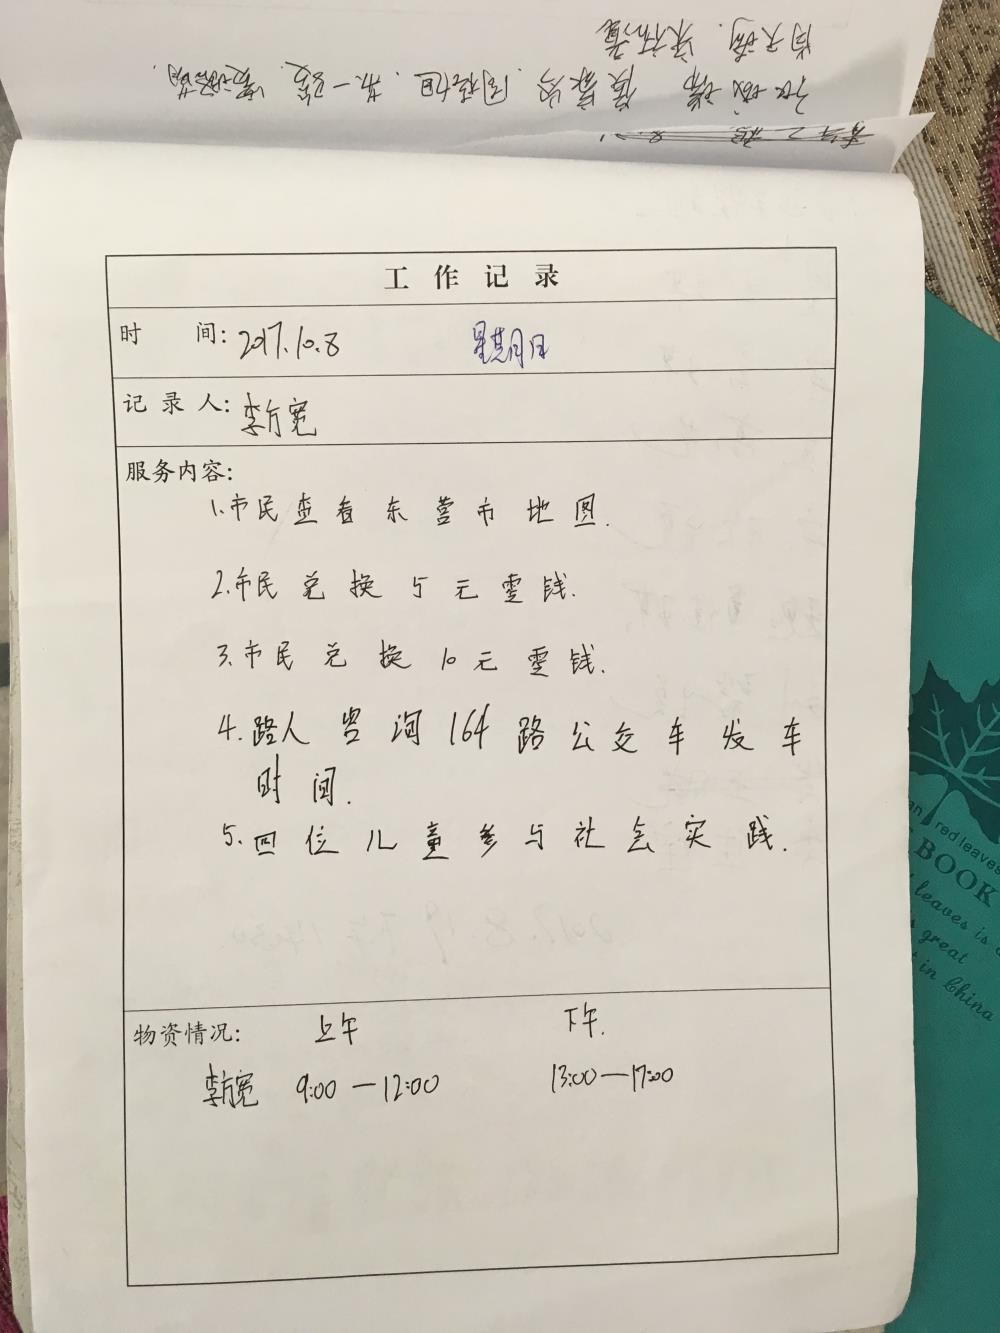 工作记录
时 间: 2017.10.8 星期日
记录人: 李方宽
服务内容:
1.市民查看东营市地图.
2.市民兑换5元零钱.
3.市民兑换10元零钱.
4.路人咨询164路公交车发车
时间.
5.四位儿童参与社会实践.
物资情况: 上午 下午.
李方宽 9:00—12:00 13:00—17:00
red leaves
BOOK
leaves is
great
in China